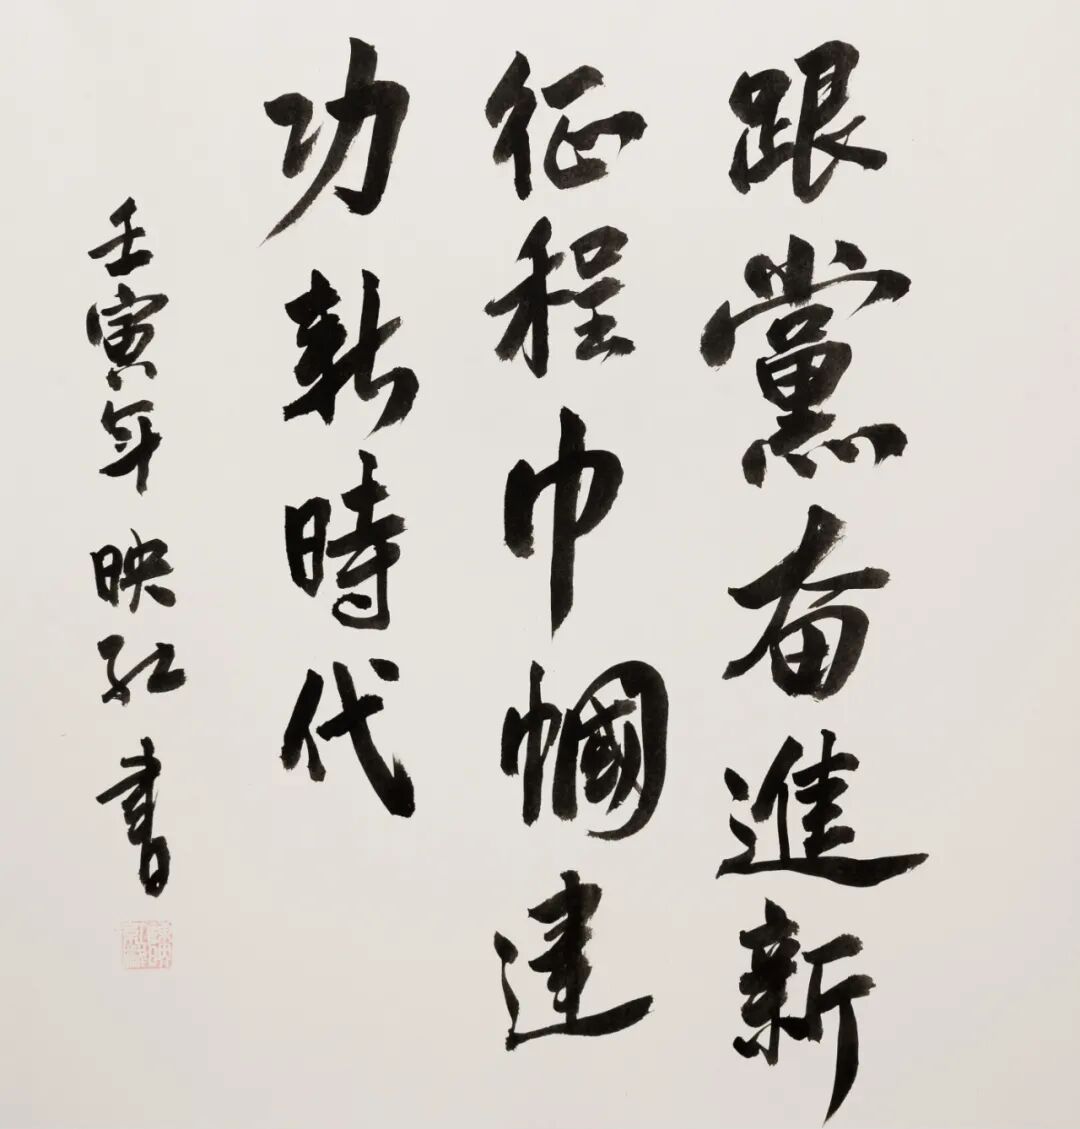 跟黨奋進新
征程巾幗建
功新時代
壬寅年映红書